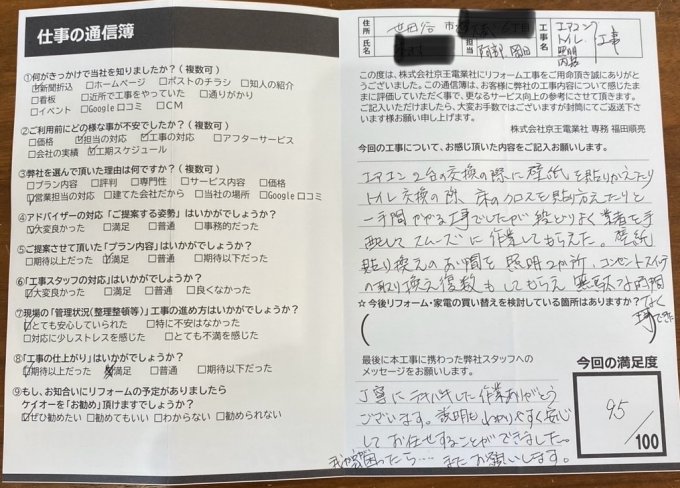 仕事の通信簿
①何がきっかけで当社を知りましたか？（複数可）
☑新聞折込 □ホームページ □ポストのチラシ □知人の紹介
□看板 □近所で工事をやっていた □通りがかり
□イベント □Google口コミ □CM
②ご利用前にどの様な事が不安でしたか？（複数可）
□価格 ☑担当の対応 ☑工事の対応 □アフターサービス
□会社の実績 ☑工期スケジュール
③弊社を選んで頂いた理由は何ですか？（複数可）
□プラン内容 □評判 □専門性 □サービス内容 □価格
☑営業担当の対応 □建てた会社だから □当社の場所 □Google口コミ
④アドバイザーの対応「ご提案する姿勢」はいかがでしたか？
☑大変良かった □満足 □普通 □事務的だった
⑤ご提案させて頂いた「プラン内容」はいかがでしょうか？
□期待以上だった ☑満足 □普通 □期待以下だった
⑥「工事スタッフの対応」はいかがでしたか？
☑大変良かった □満足 □普通 □良くなかった
⑦現場の「管理状況(整理整頓等)」工事の進め方はいかがでしょうか？
☑とても安心していられた □特に不安はなかった
□対応に少しストレスを感じた □とても不満を感じた
⑧「工事の仕上がり」はいかがでしょうか？
☑期待以上だった 満足 □普通 □期待以下だった
⑨もし、お知合いにリフォームの予定がありましたら
ケイオーを「お勧め」頂けますでしょうか？
☑ぜひ勧めたい □勧めてもいい □わからない □勧められない
住所 世田谷 市・区
氏名
担当 阿部 岡田
工事名 エアコン
トイレ
照明
内装 工事
この度は、株式会社京王電業社にリフォーム工事をご用命頂き誠にありがとうございました。この通信簿は、お客様に弊社の工事内容について感じたままに評価していただく事で、更なるサービス向上の参考にさせて頂きます。
ご記入いただけましたら、大変お手数ではございますが封筒にてご返送下さいます様お願い申し上げます。
株式会社京王電業社 専務 福田順亮
今回の工事について、お感じ頂いた内容をご記入お願いします。
エアコン2台の交換の際に壁紙を貼りかえたり
トイレ交換の際、床のクロスを貼り方えたりと
一手間かかる工事でしたが段どりよく業者を手
配してスムーズに作業してもらえた。壁紙
貼り換えのお間を照明2か所、コンセントスイッチ
の取り換え複数もしてもらえ無駄な時間
なく
工事できた
☆今後リフォーム・家電の買い替えを検討している箇所はありますか？
最後に本工事に携わった弊社スタッフへの
メッセージをお願いします。
丁寧に 作業ありがとう
ございます。説明もわかりやすく安心
してお任せすることができました。
困ったら…またお願いします。
今回の満足度
95
/100